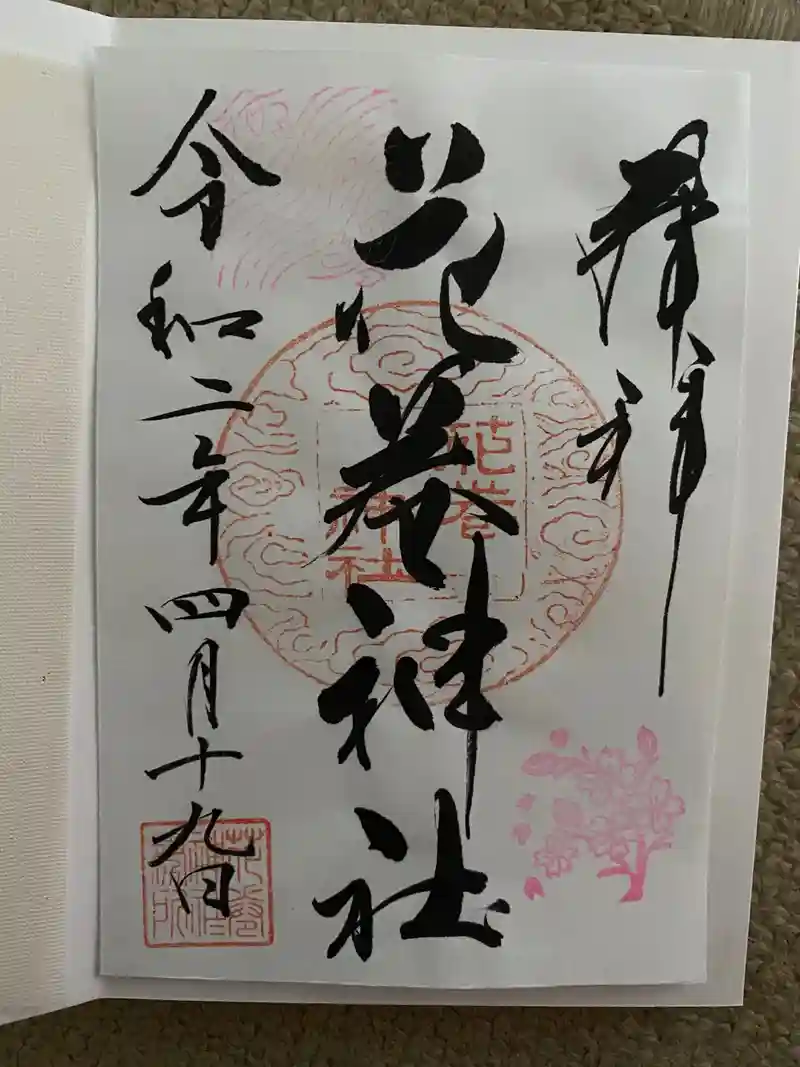 奉拝
花巻神社
令和二年四月十九日
花巻
神社